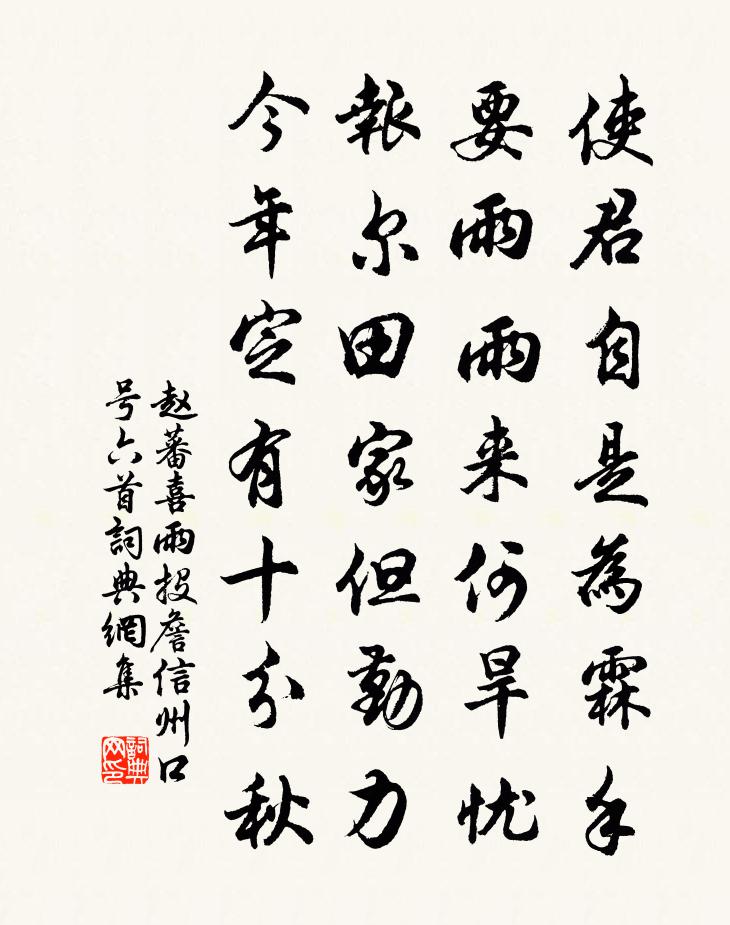 使君自是為霖手
要雨雨来何旱忧
報尔田家但勤力
今年定有十分秋
赵蕃喜雨投詹信州口
号六首詞典網集
詞典
网印